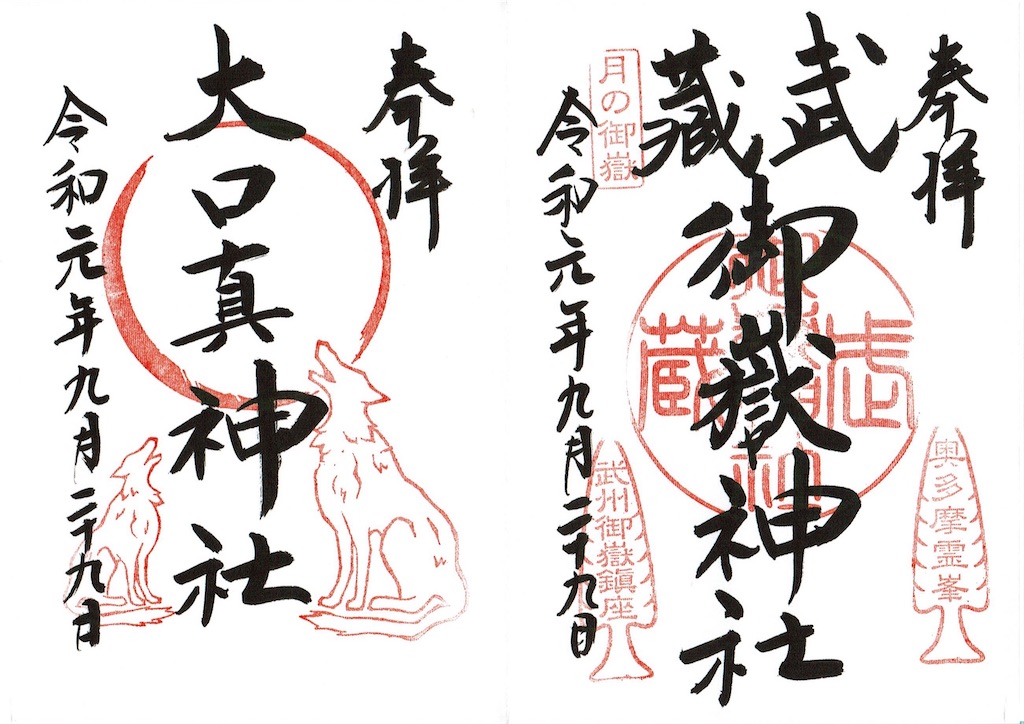 奉拝
武藏
御嶽神社
令和元年九月二十九日
月の御嶽
武蔵
奥多摩霊峯
武州御嶽鎮座
奉拝
大口真神社
令和元年九月二十九日